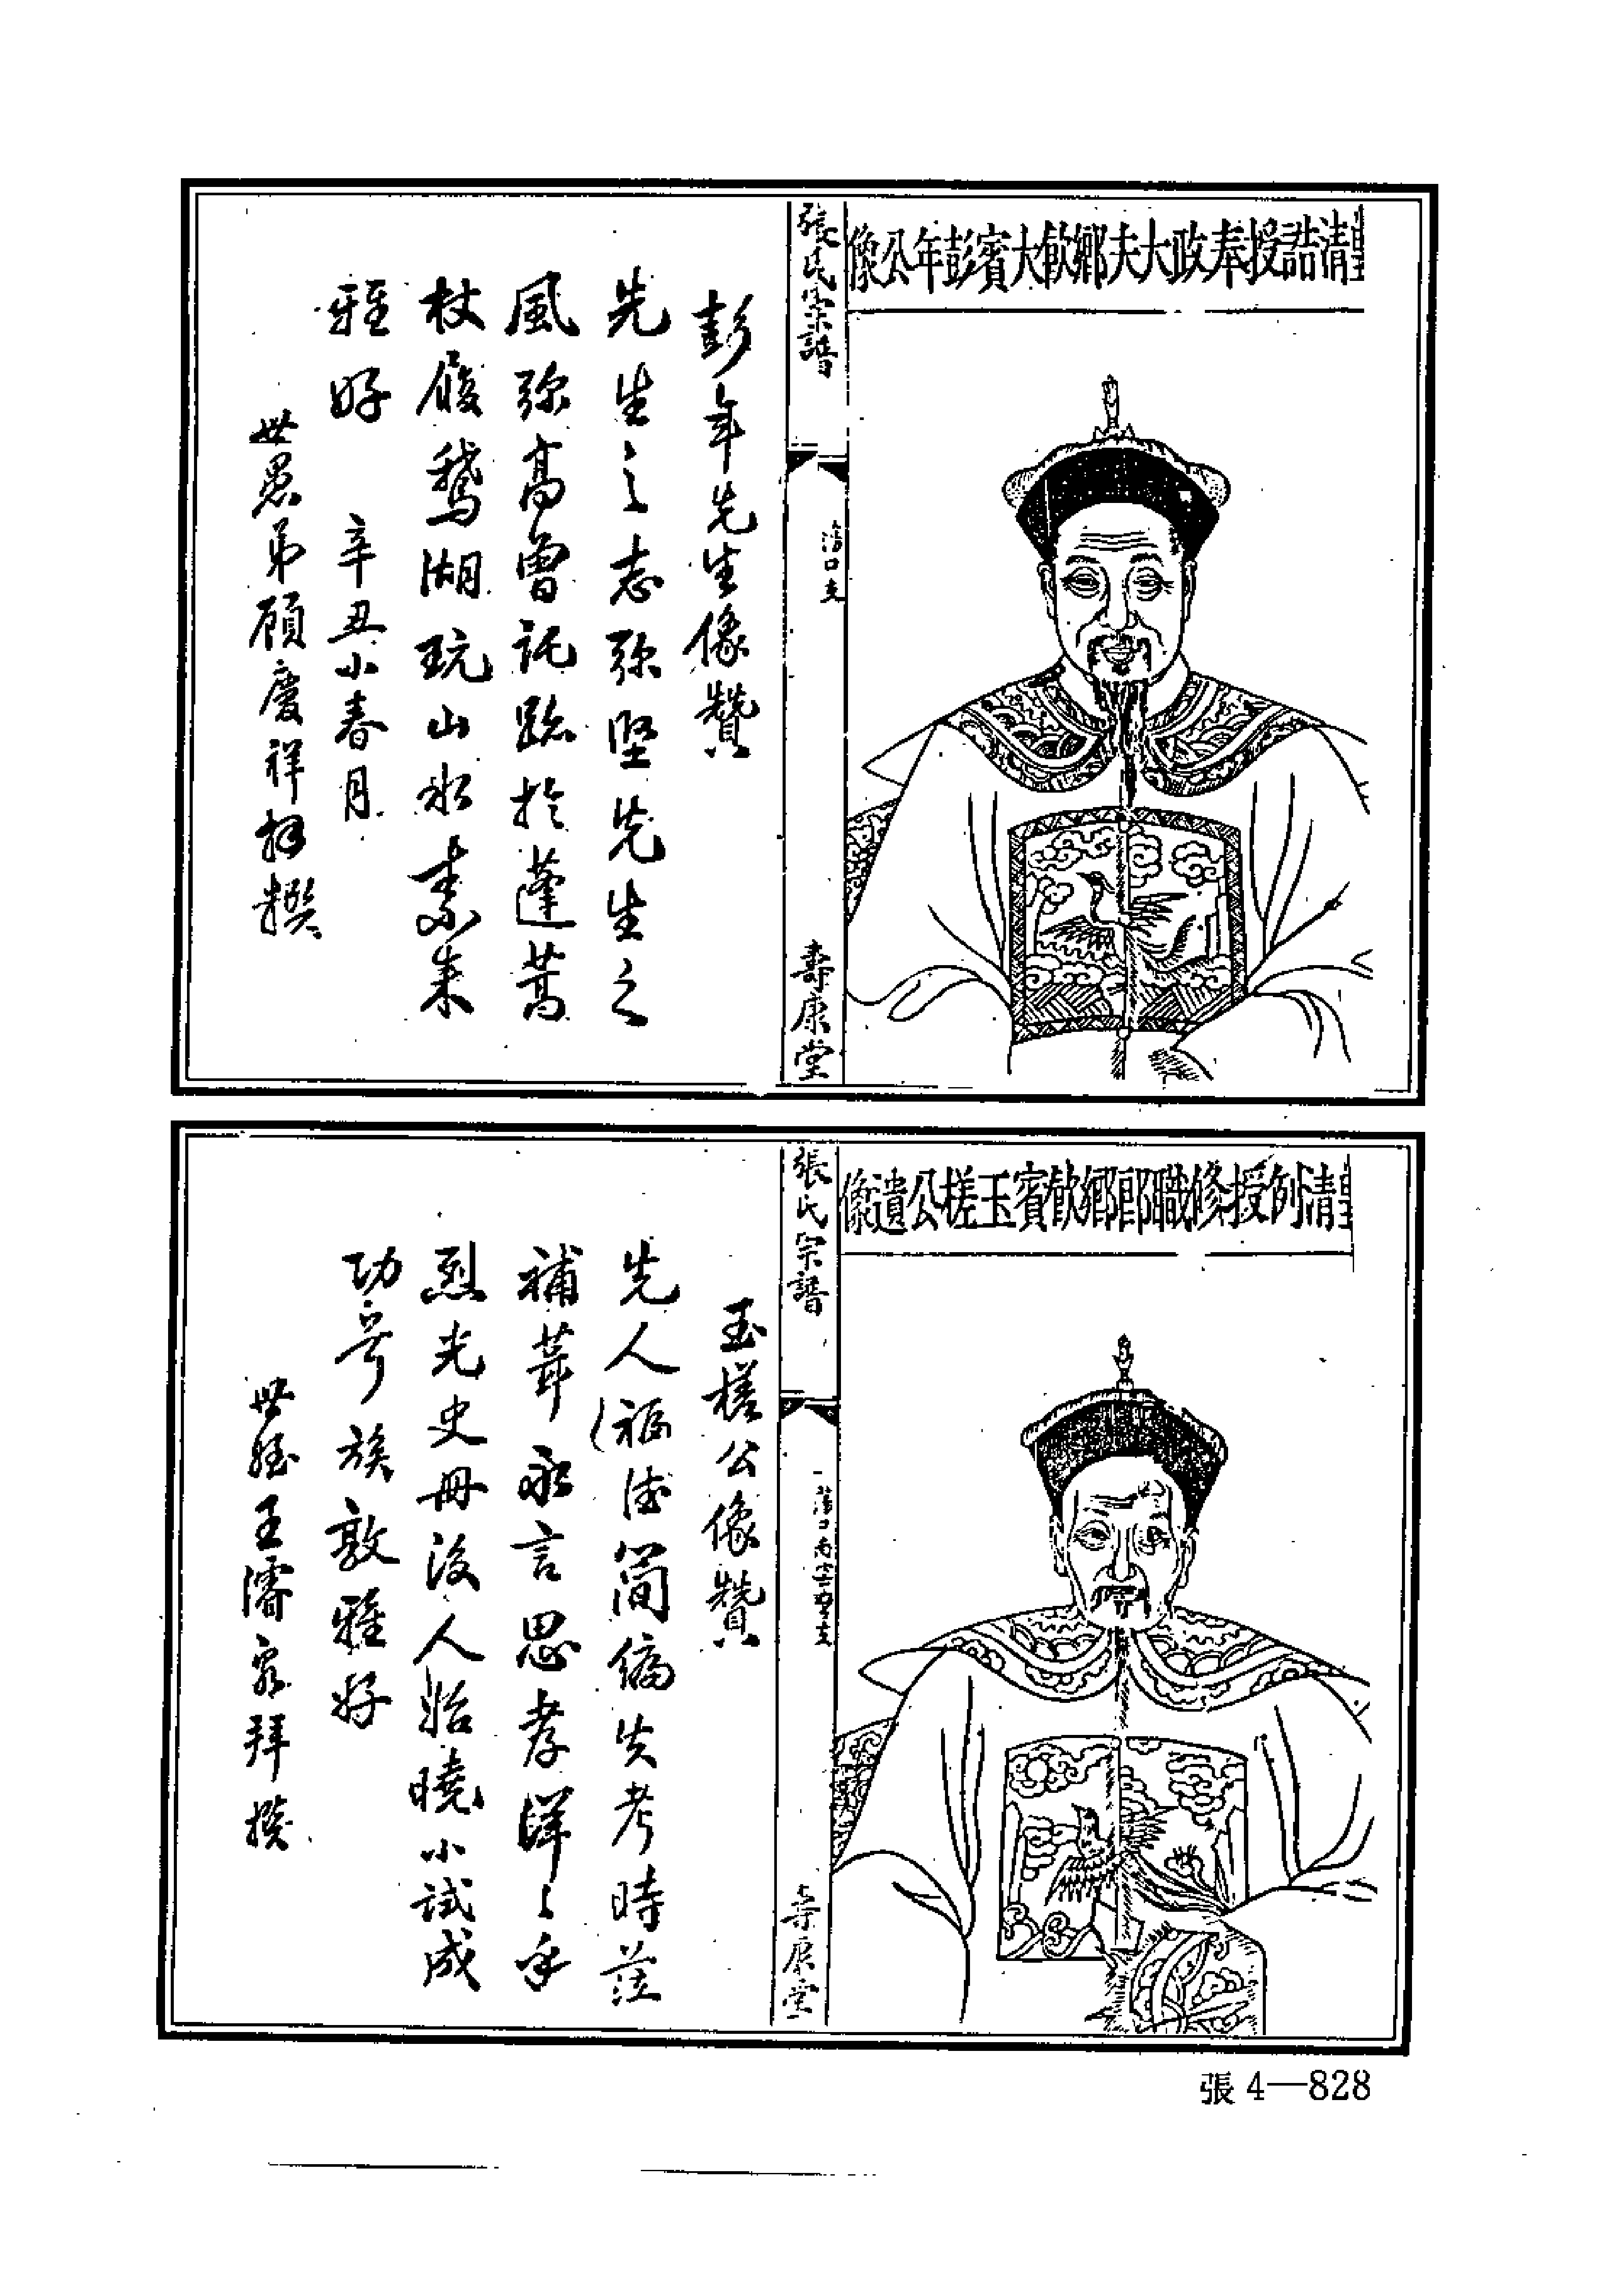 皇清誥授奉政大夫鄉飲大賓彭年公像
張氏宗譜
蕩口支
壽康堂
彭年先生像贊
先生之志弥堅先生之
風弥高曾託跡於蓬蒿
杖履鵝湖玩山水素来
雅好 辛丑小春月
世愚弟顧慶祥拜撰
皇清例授修職郎鄉飲賓玉槎公遺像
張氏宗譜
蕩口支
壽康堂
玉槎公像贊
先人福德簡徧失考時茫
補葺永言思孝洋〻乎
烈光史冊後人貽曉小試成
功 族敦雅好
世姪王濬 拜撰
張 4—828